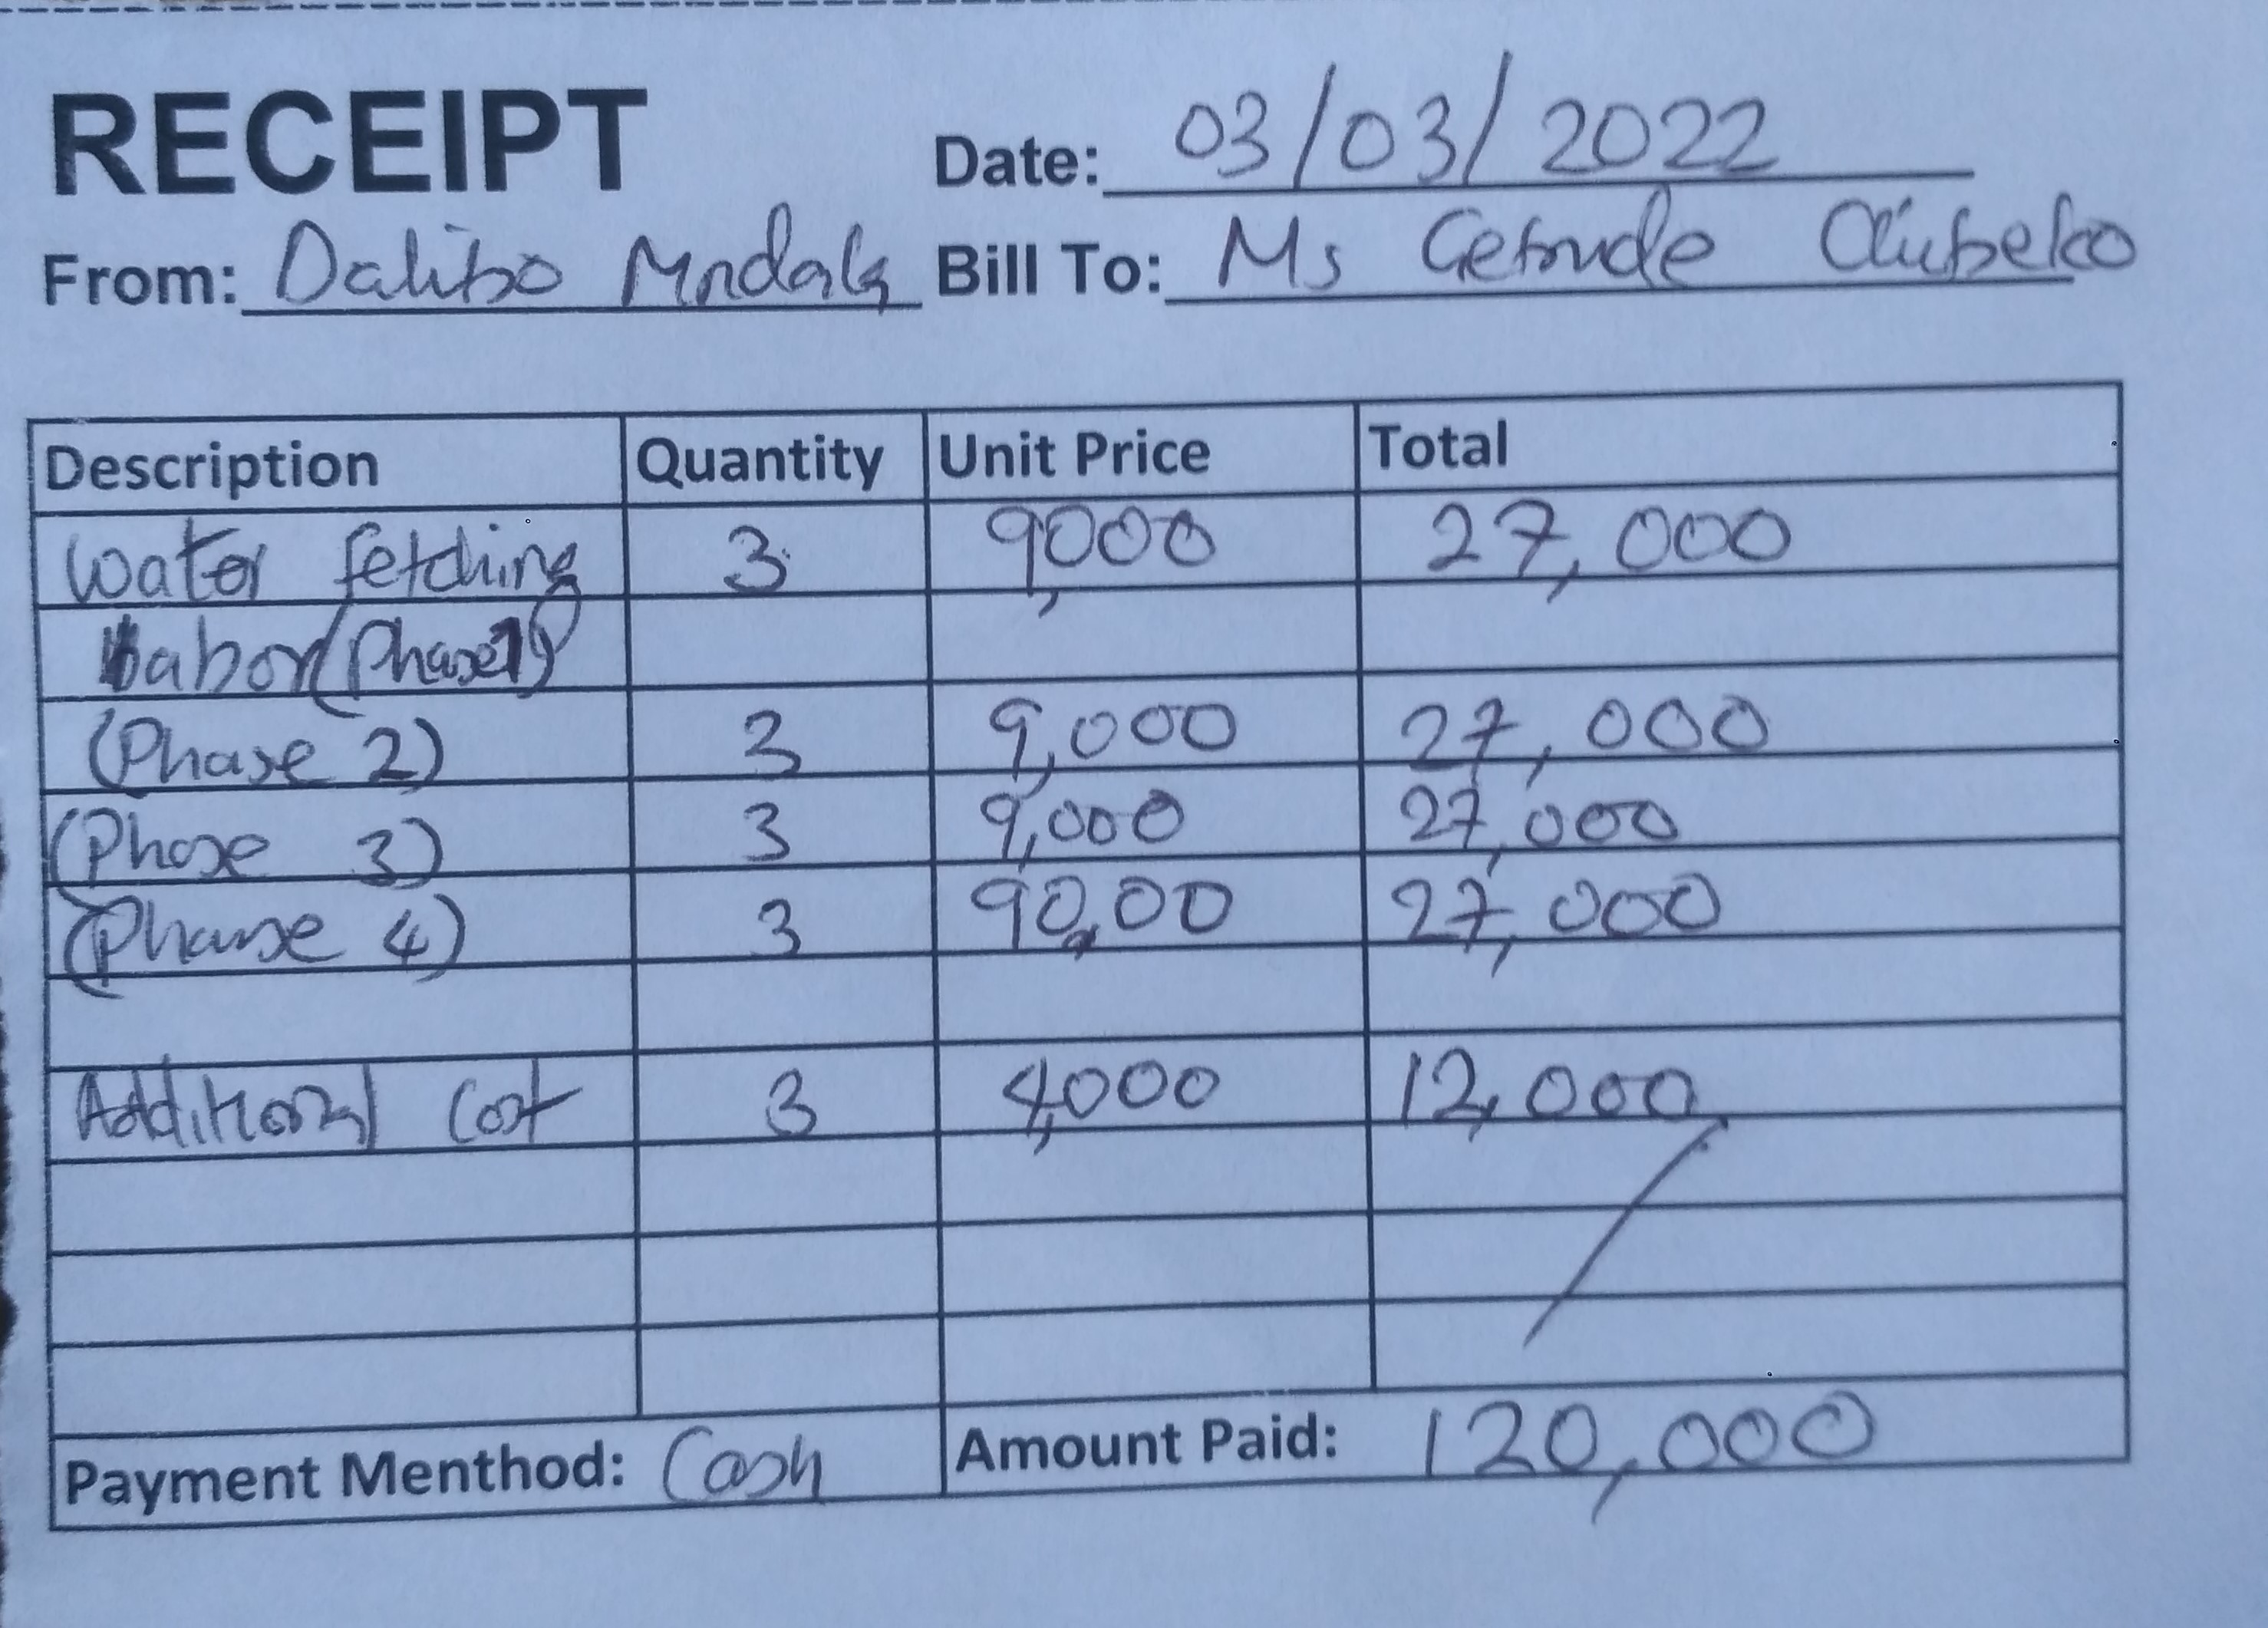 RECEIPT Date: 03/03/2022
From: Dalitso Mndala Bill To: Ms Getrude
Description Quantity Unit Price Total
Water fetching 3 9000, 27,000
Labor (Phase 1)
(Phase 2) 3 9,000 27,000
(Phase 3) 3 9,000 27,000
(Phase 4) 3 90,00 27,000
Additional Cost 3 4,000 12,000
Payment Menthod: Cash Amount Paid: 120,000